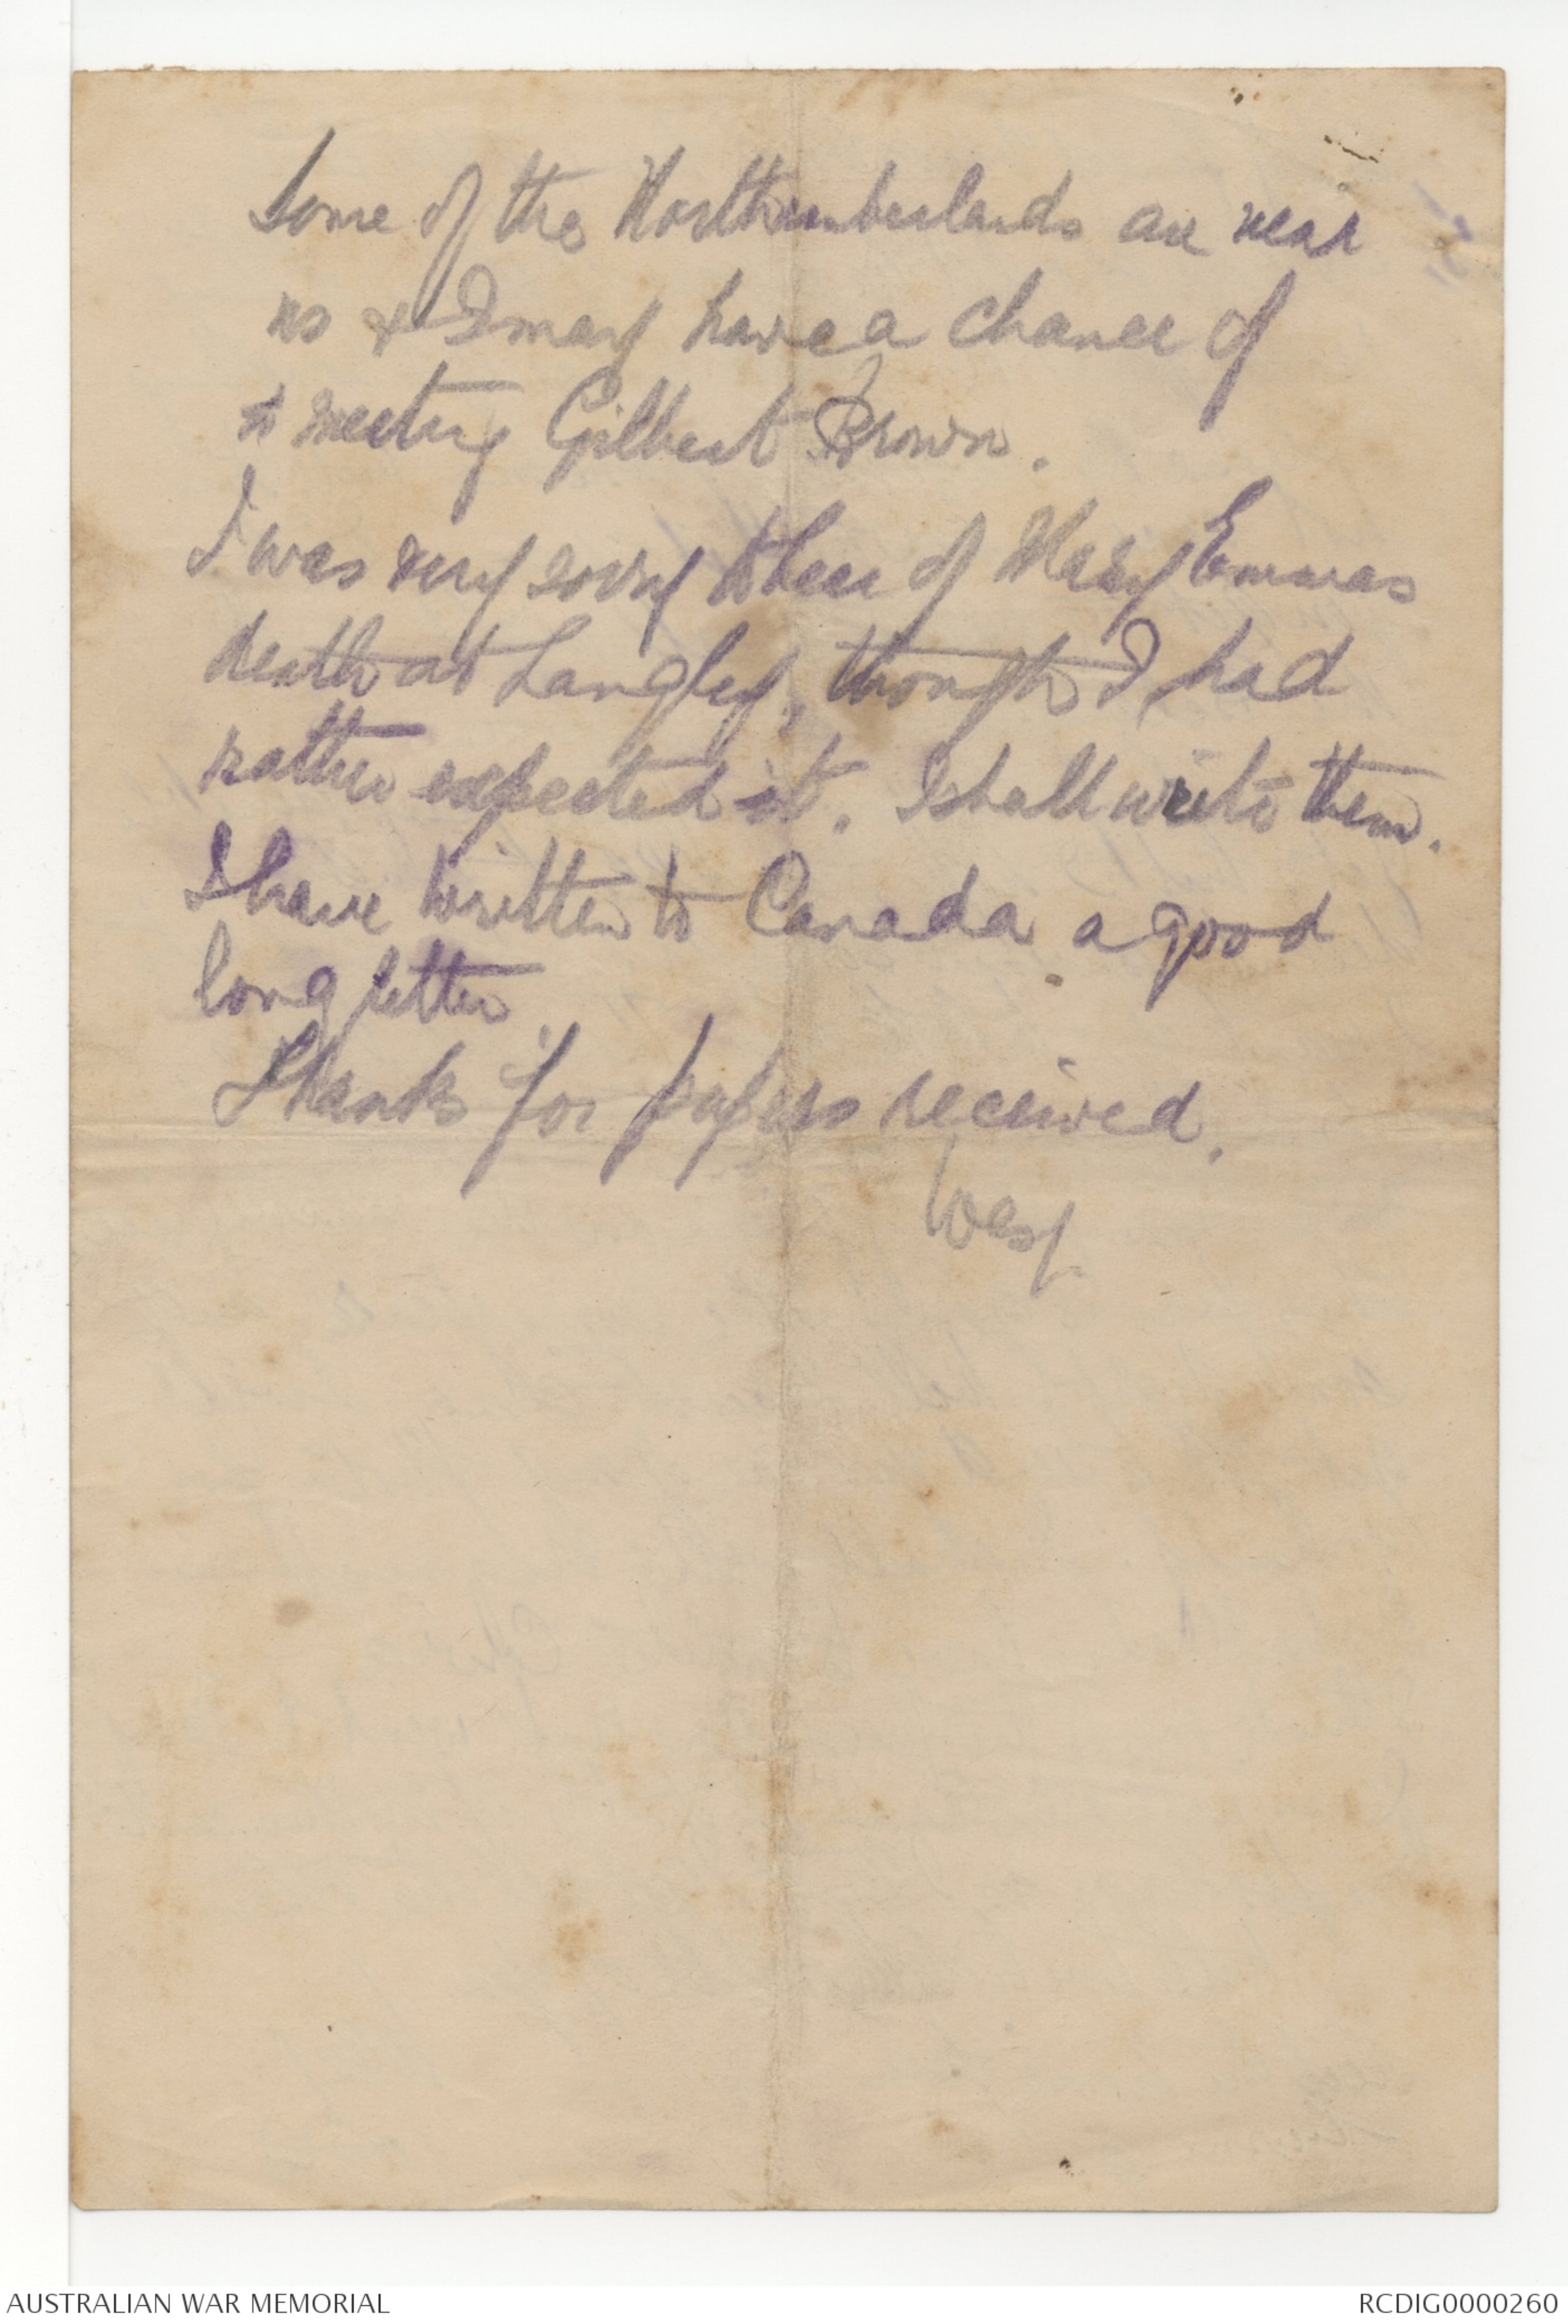 Some of the Northumberlands are near
us & I may have a chance of
to meeting Gilbert Brown.
I was very sorry to hear of Mary Emmas
death at Langley, though I had
rather expected it. I shall write them.
I have written to Canada a good
long letter.
Thanks for papers received.
Wesf.
AUSTRALIAN WAR MEMORIAL
RCDIG0000260